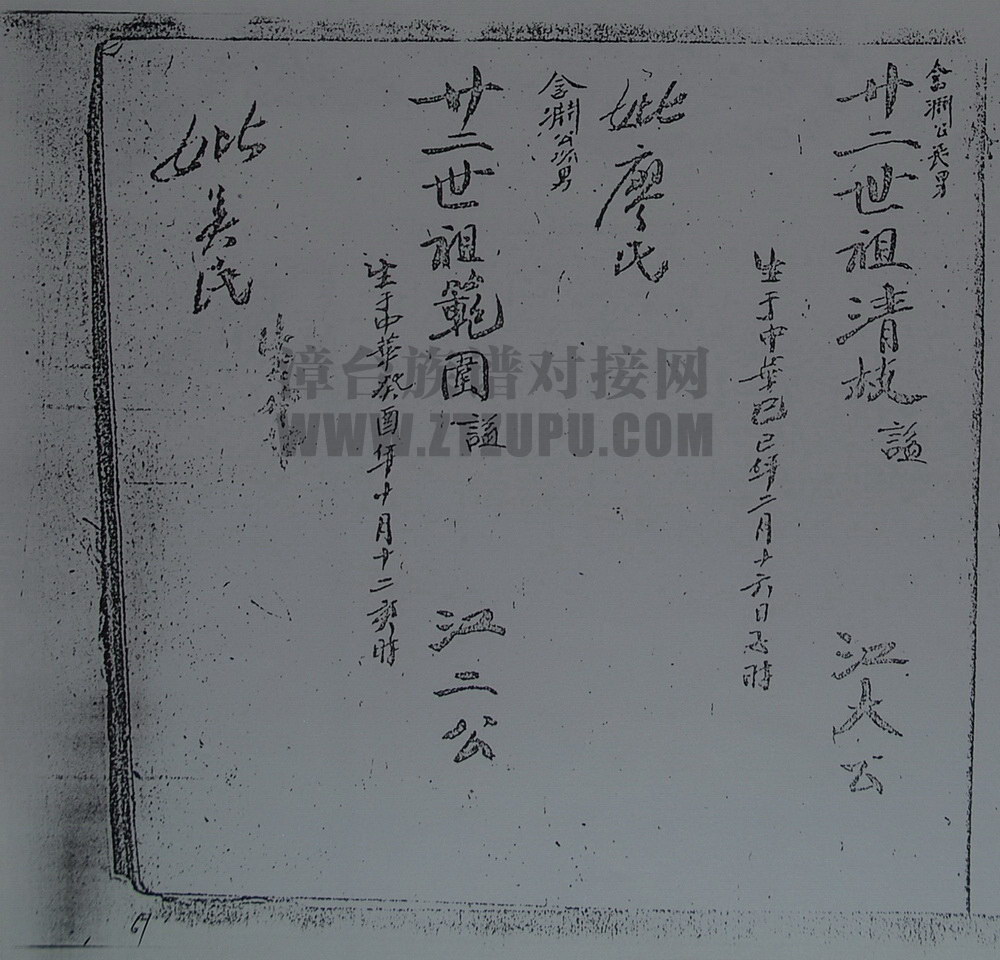 金渊公长男
廿二世祖清故諡 江大公
生于中華己巳年二月十六日子時
妣廖氏
金渊公次男
廿二世祖範圍諡 江二公
生于中華癸酉年十月十二亥時
妣吳氏
漳台族谱对接网
WWW.ZTZUPU.COM